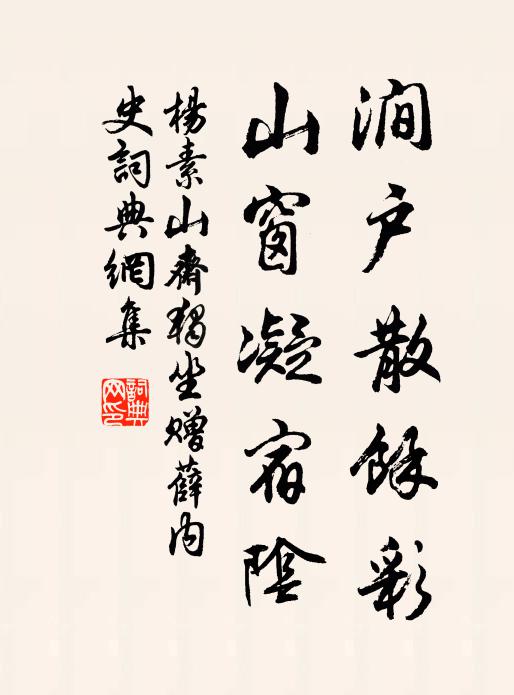 澗户散餘彩
山窗凝宿陰
楊素山齋獨坐贈薛内
史詞典網集
詞典
网印